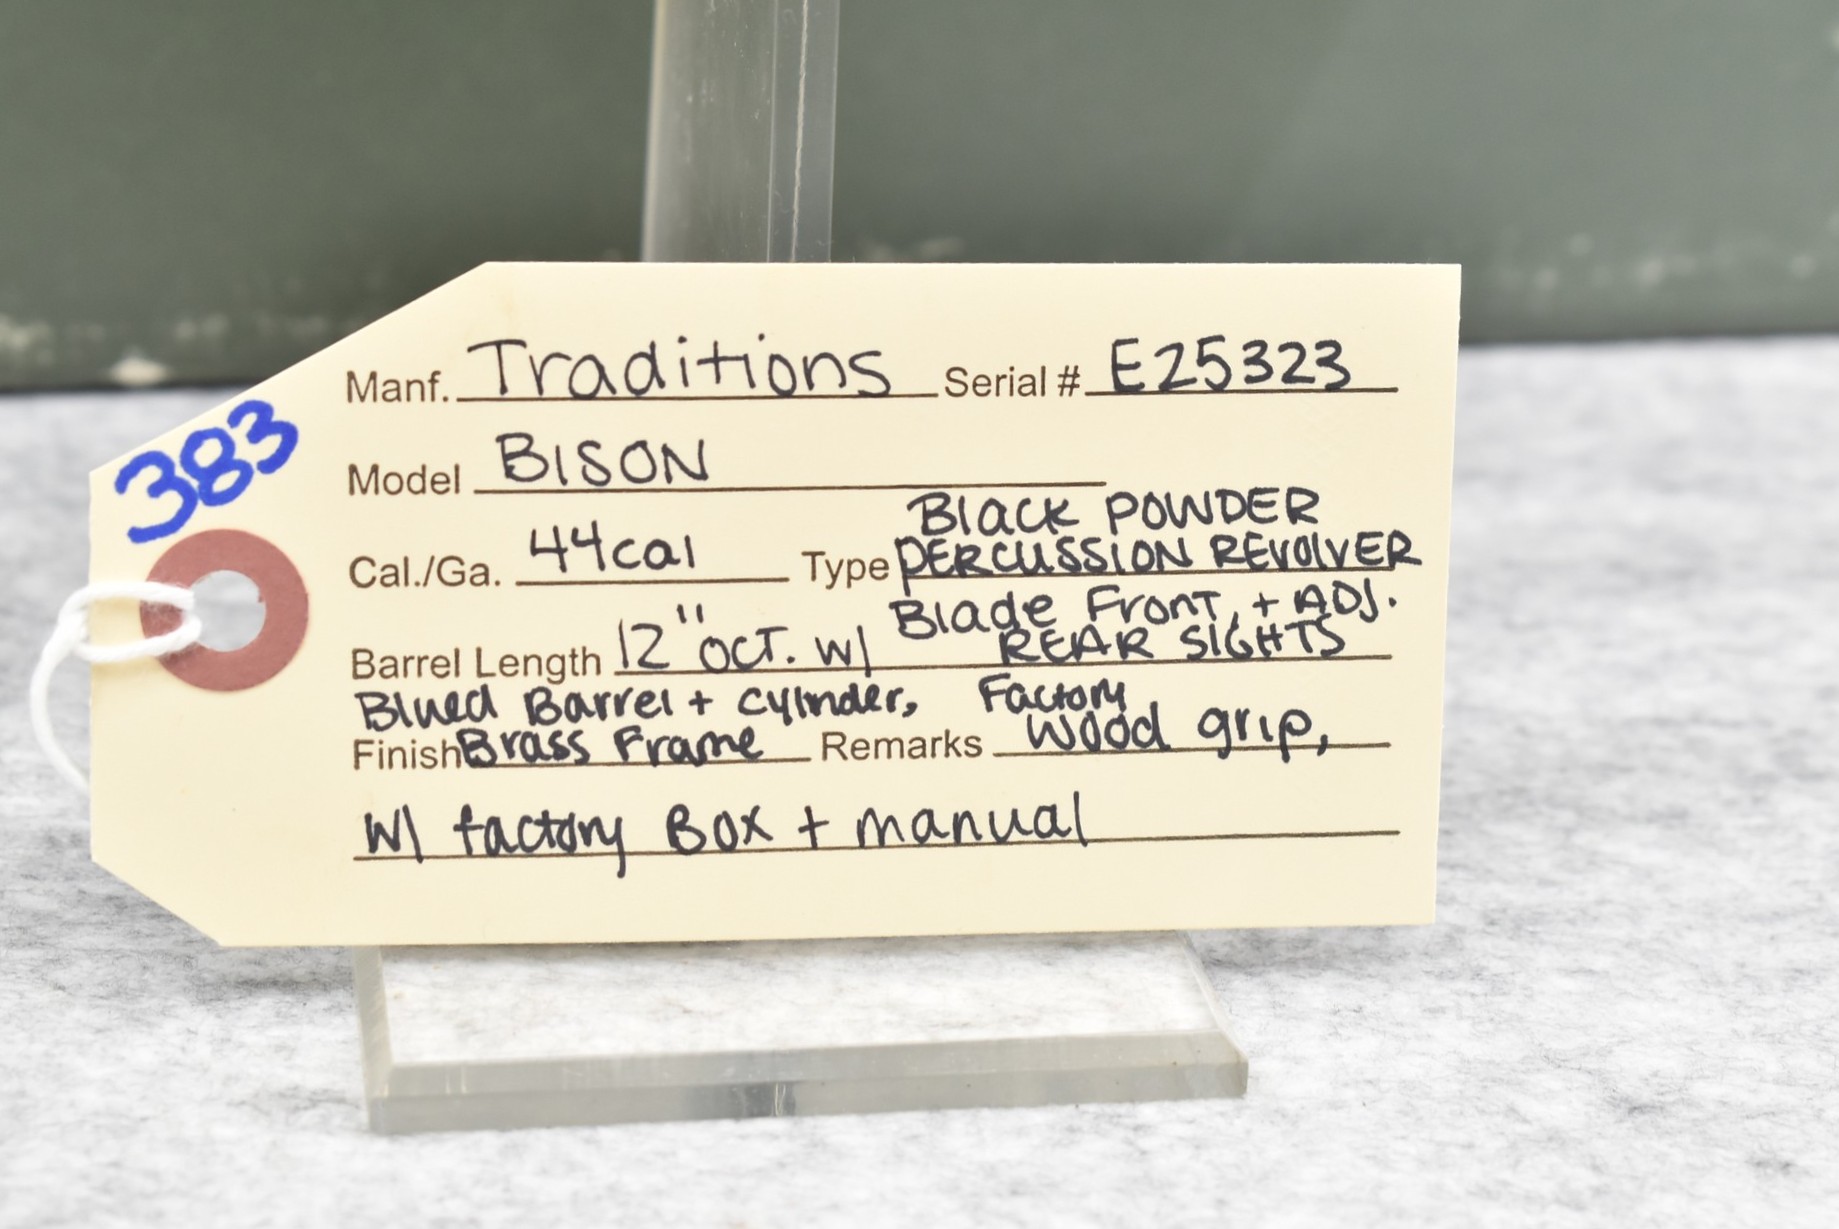 383
Manf. Traditions Serial # E25323
Model BISON
Black POWDER
Cal./Ga. 44cal Type PERCUSSION REVOLVER
Blade Front, + ADJ.
Barrel Length 12" OCT. w/ REAR SIGHTS
Blued Barrel + cylinder, Factory
Finish Brass Frame Remarks Wood grip,
W/ factory Box + manual